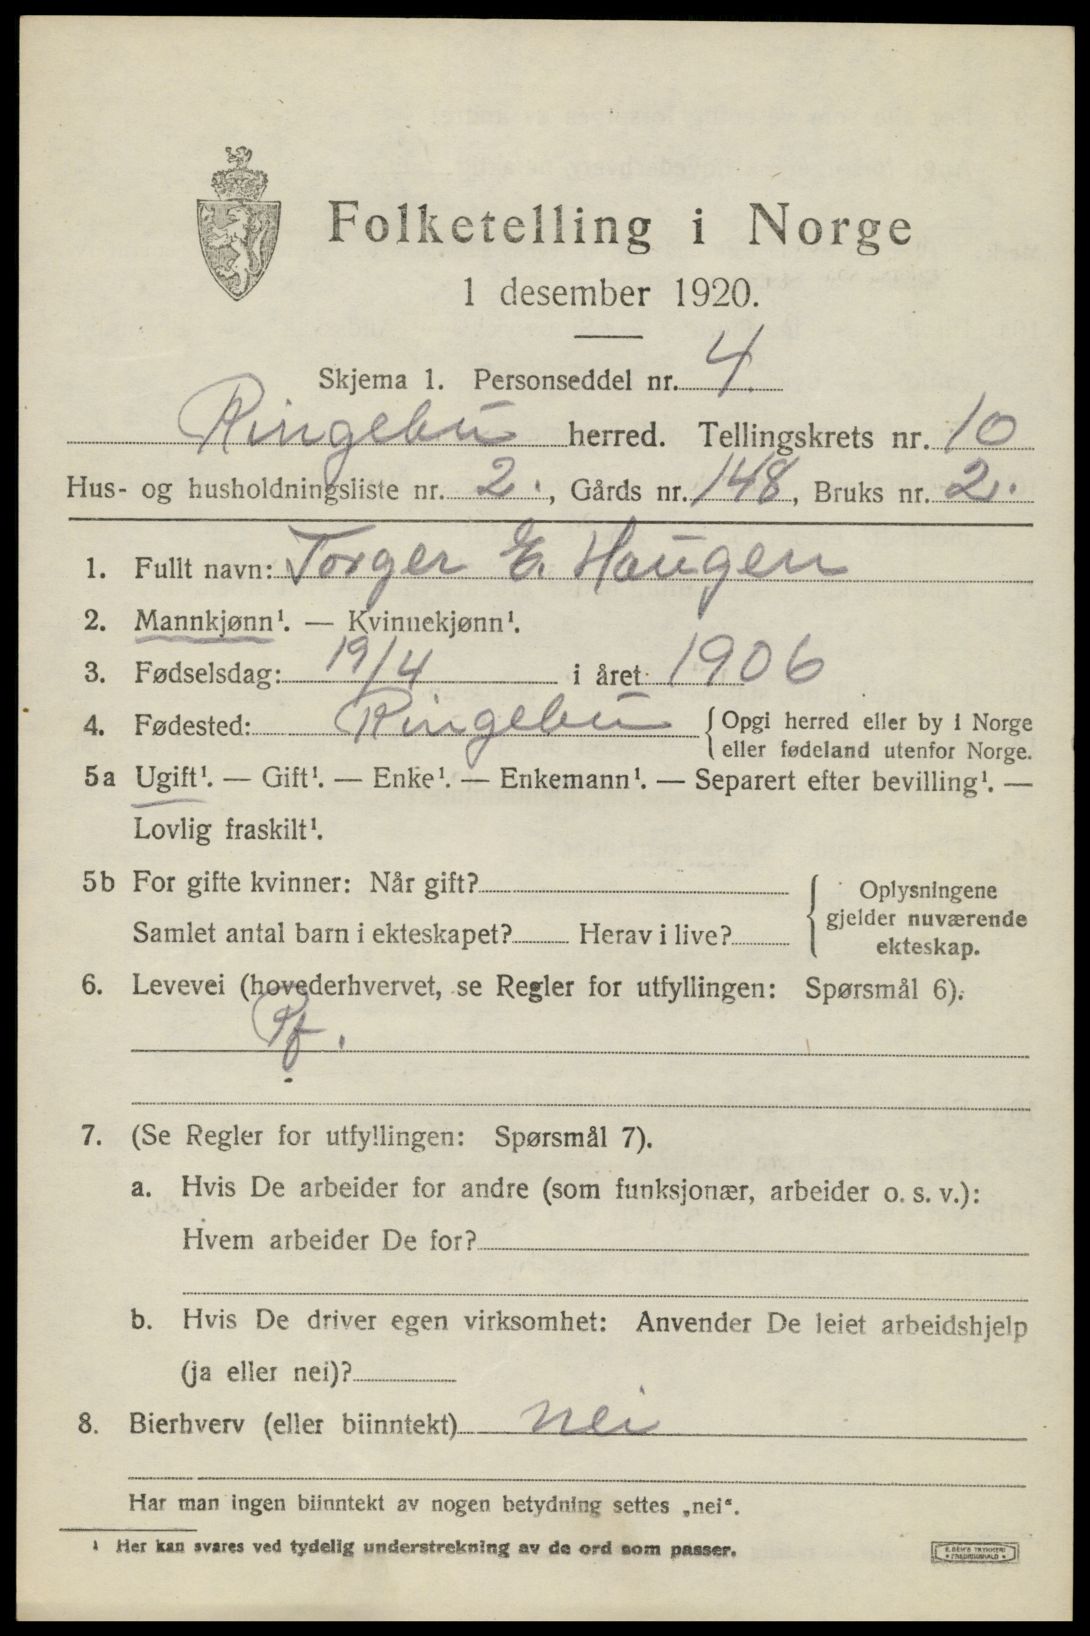 Folketelling i Norge
1 desember 1920.
Skjema 1. Personseddel nr. 4.
Ringebu herred. Tellingskrets nr. 10
Hus- og husholdningsliste nr. 2., Gårds nr. 148, Bruks nr. 2.
1. Fullt navn: Torger E. Haugen
2. Mannkjønn¹. — Kvinnekjønn¹.
3. Fødselsdag: 19/4 i året 1906
4. Fødested: Ringebu {Opgi herred eller by i Norge
eller fødeland utenfor Norge.
5a Ugift¹. — Gift¹. — Enke¹. — Enkemann¹. — Separert efter bevilling¹. —
Lovlig fraskilt¹.
5b For gifte kvinner: Når gift?
Samlet antal barn i ekteskapet? Herav i live?
{ Oplysningene
gjelder nuværende
ekteskap.
6. Levevei (hovederhvervet, se Regler for utfyllingen: Spørsmål 6).
Pf.
7. (Se Regler for utfyllingen: Spørsmål 7).
a. Hvis De arbeider for andre (som funksjonær, arbeider o. s. v.):
Hvem arbeider De for?
b. Hvis De driver egen virksomhet: Anvender De leiet arbeidshjelp
(ja eller nei)?
8. Bierhverv (eller biinntekt) nei
Har man ingen biinntekt av nogen betydning settes „nei“.
¹ Her kan svares ved tydelig understrekning av de ord som passer.